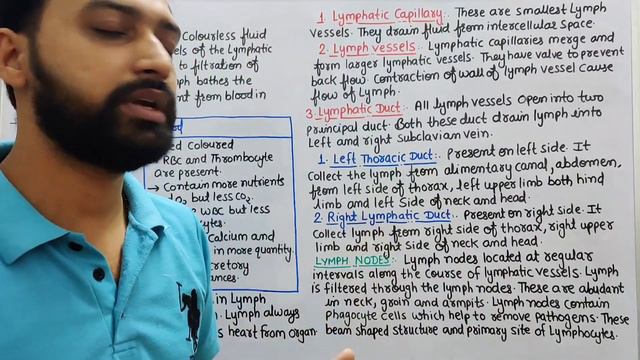 Colourless fluid
els of the Lymphatic
to filtration of
ymph bathes the
ent from blood in
ed Coloured
RBC and Thrombocyte
are present.
→ Contain more nutrients
O₂ but less CO₂.
WBC but less
cytes.
Calcium and
in more quantity.
cretory
ances.
in Lymph
Lymph always
s heart from organ.
1. Lymphatic Capillary. These are smallest Lymph
Vessels. They drain fluid from intercellular space.
2. Lymph vessels. Lymphatic capillaries merge and
form larger lymphatic vessels. They have valve to prevent
back flow. Contraction of wall of lymph vessel cause
flow of Lymph.
3. Lymphatic Duct. All lymph vessels open into two
principal duct. Both these duct drain lymph into
Left and right Subclavian vein.
1. Left Thoracic Duct:. Present on left side. It
Collect the lymph from alimentary canal, abdomen,
from left side of thorax, left upper limb both hind
limb and left side of neck and head.
2. Right Lymphatic Duct.. Present on right side. It
Collect lymph from right side of thorax, right upper
limb and right side of neck and head.
LYMPH NODES:. Lymph nodes located at regular
intervals along the course of lymphatic vessels. Lymph
is filtered through the lymph nodes. These are abudant
in neck, groin and armpits. Lymph nodes contain
phagocyte cells which help to remove pathogens. These
bean shaped structure and primary site of Lymphocytes.